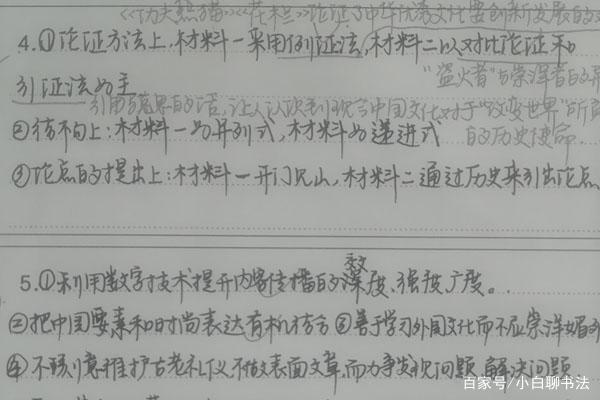 《功夫熊猫》《花木兰》论证了中华优秀文化要创新发展的
4.①论证方法上,材料一采用例证法,材料二以对比论证和
"盗火者"与崇洋者的异
引证法为主
引用鲁迅的话,让人认识到现合中国文化对于"改变世界"所
②结构上:材料一为并列式,材料为递进式
的历史使命.
③论点的提出上:材料一开门见山,材料二通过历史来引出论点
5.①利用数字技术提升内容传播的深度、强度、广度。
效
②把中国要素和时尚表达有机结合③善于学习外国文化而不应崇洋媚外
④不刻意维护古老礼仪不做表面文章,而力争发现问题解决问题
百家号/小白聊书法